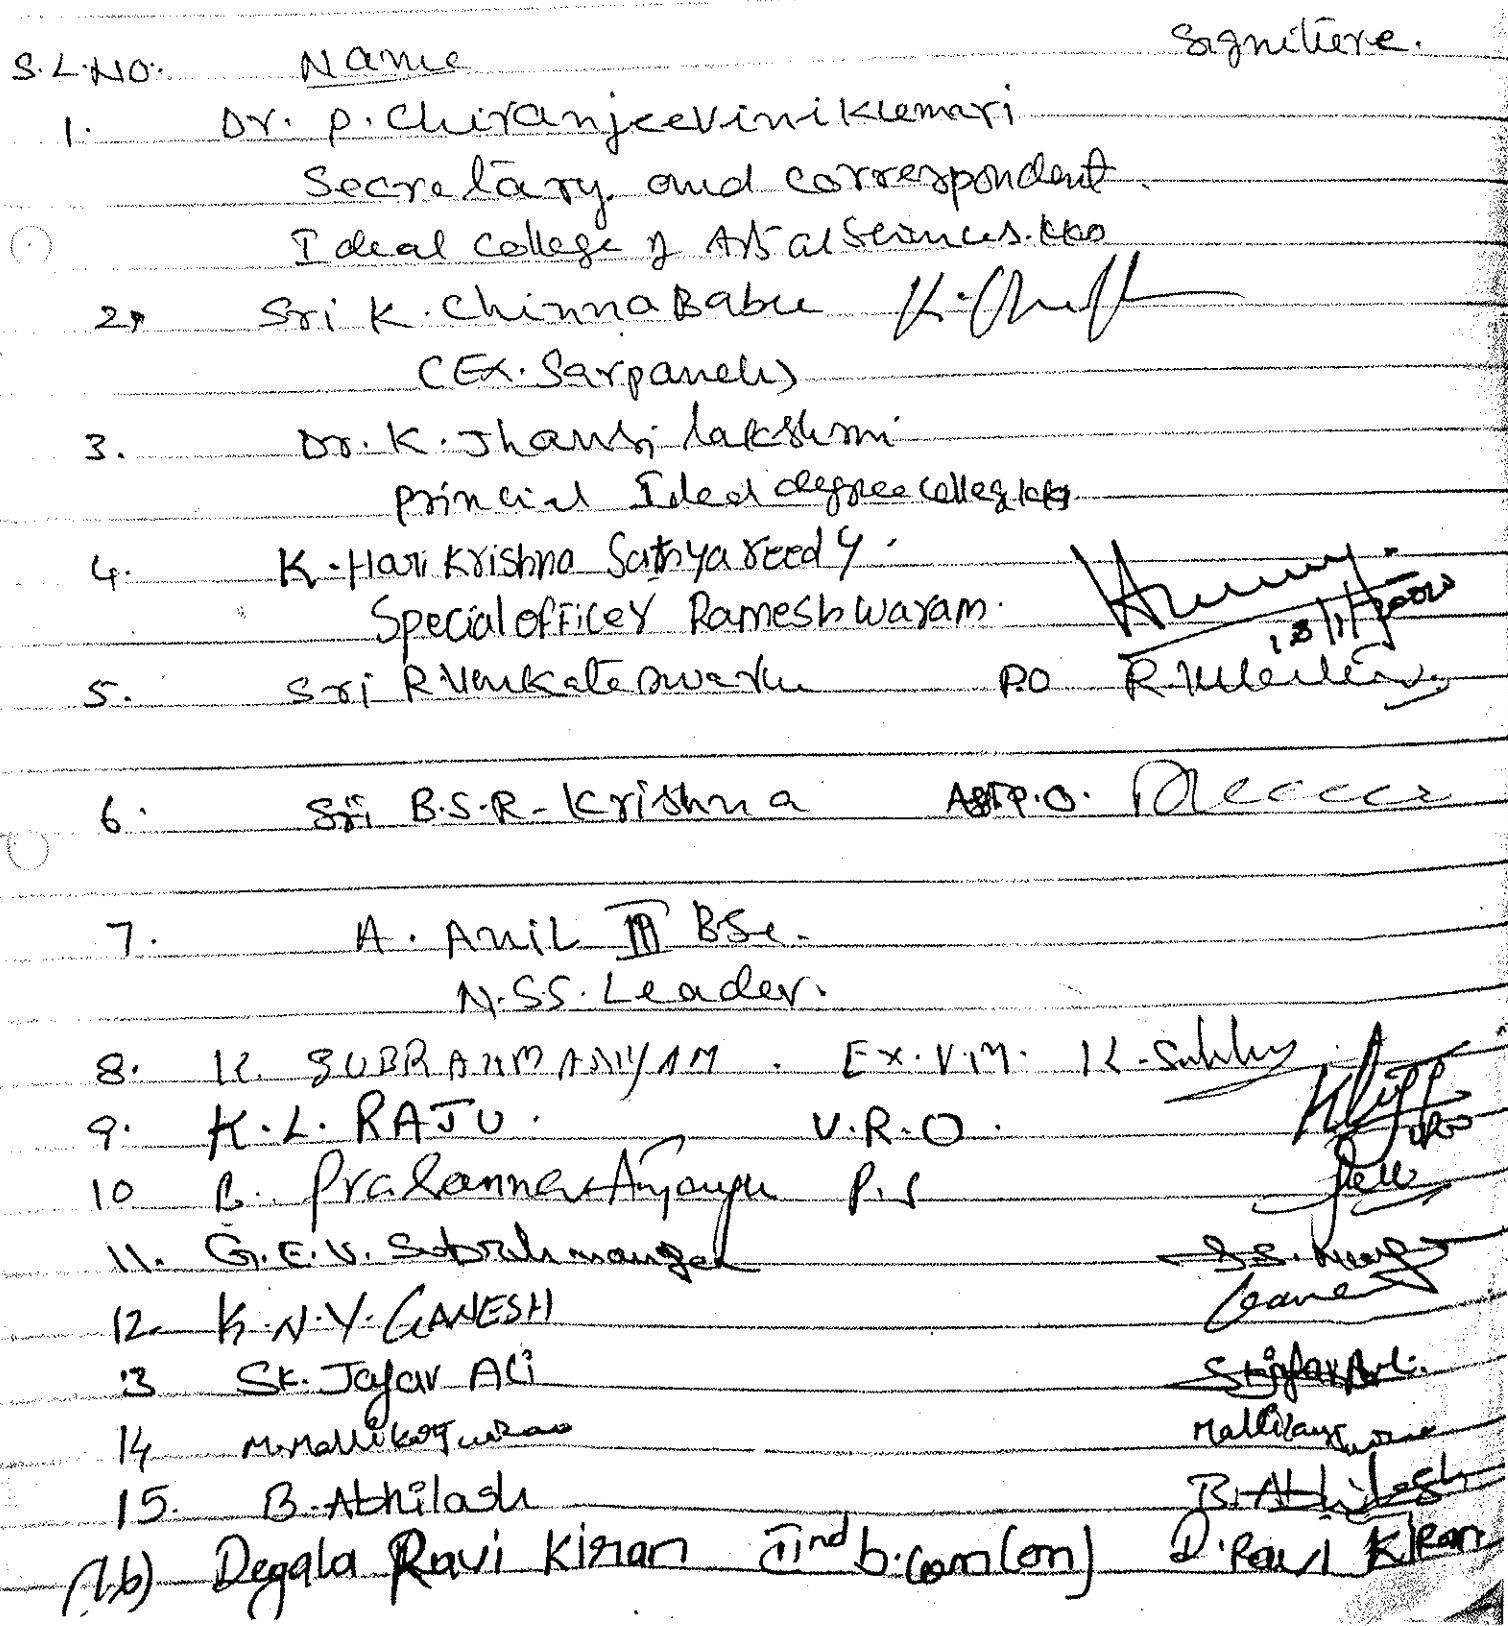 S.L.NO. Name Signiture.
1. Dr. P. Chiranjeevini Kumari
Secretary and correspondent.
Ideal College of Arts & Sciences. KKD
2. Sri K. Chinna Babu
(Ex. Sarpanch)
3. Dr. K. Jhansi lakshmi
princial Ideal degree colleg kkd
4. K. Hari Krishna Sathya reedy.
Special officer Rameshwaram. 13/1/2020
5. Sri R. Venkateswarlu P.O
6. Sri B.S.R. Krishna Asst P.O.
7. A. Anil III BSc.
N.S.S. Leader.
8. K. SUBRAHMANIYAM. Ex. V.M. K. Subbu
9. K.L. RAJU. V.R.O. VRO
10 B. Prasanna Anjaneyu P.S
11. G.E.V. Subrahmanyam
12. K.N.Y. GANESH Ganesh
13 Sk. Jafar Ali Sk jafar Ali.
14 M. Mallikarjunrao
15. B. Abhilash B. Abhilash
16) Degala Ravi Kiran IInd b.com(em) D. Ravi Kiran